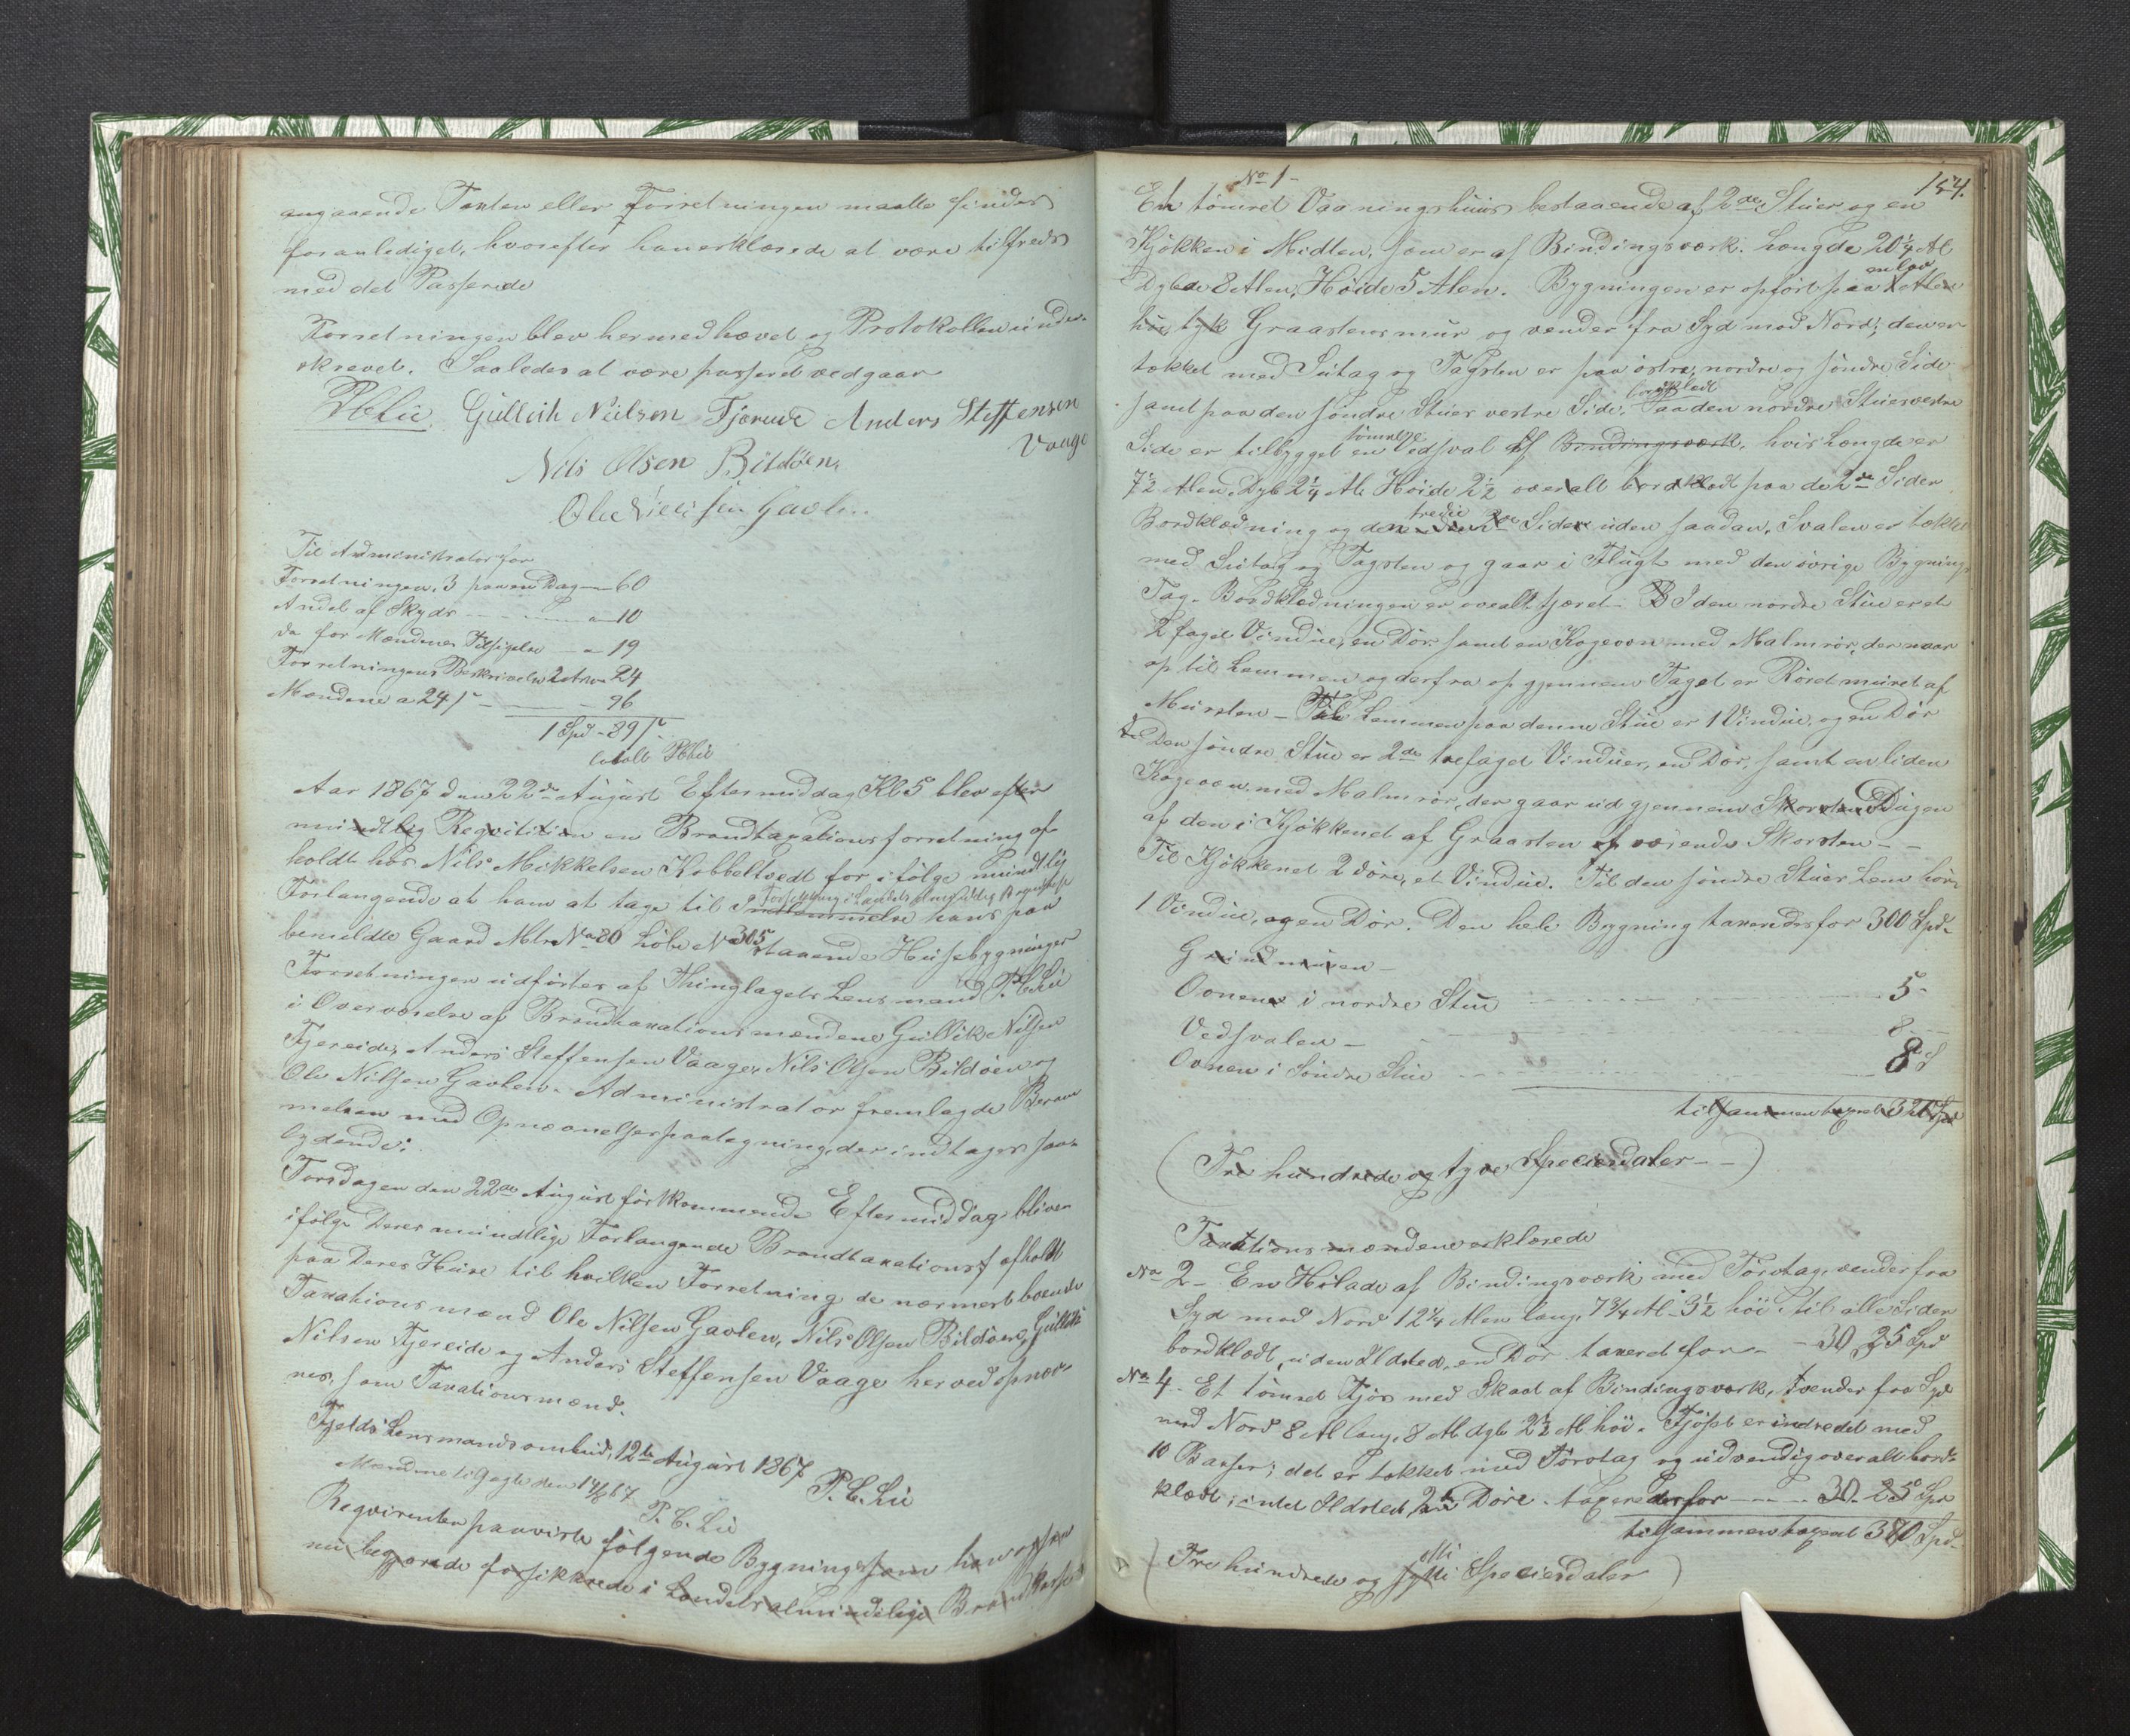 angaaende Taxten eller Forretningen maatte findes
foranlediget, hvorefter han erklærede at være tilfreds
med det Passerede
Forretningen blev hermed hævet og Protokollen under-
skrevet. Saaledes at være passeret vedgaar
PCLie. Gulleik Nielsen Fjereide Anders Steffensen
Vaage
Nils Olsen Bildøen
Ole Nielsen Gavlen
Til Administrator for
Forretningen, 3 paa en Dag — 60
Andel af Skyds — 10
do for Mændenes Tilsigelse — 19
Forretningens Beskrivelse 2 Ark — 24
Mændene a 24 s — 96
1 Spd 89 s
betalt PCLie
Aar 1867 den 22de August Eftermiddag Kl 5 blev efter
mundtlig Reqvisition en Brandtaxationsforretning af-
holdt hos Nils Mikkelsen Kobbeltvedt for ifölge mundtlig
Forsikkring i Landets almindelige Brandkasse
Forlangende at ham at tage til hans paa
bemeldte Gaard Mtr No 80 Löbe No 305 staaende Huusebygninger
Forretningen udförtes af Thinglagets Lensmand P.C.Lie
i Overværelse af Brandtaxationsmændene Gullik Nilsen
Fjereide, Anders Steffensen Vaage, Nils Olsen Bildöen og
Ole Nilsen Gavlen. Administrator fremlagde Beram
melsen med Opnævnelsespaategning, der indtages saa-
lydende:
Torsdagen den 22de August förstkommende Eftermiddag bliver
ifölge Deres mundtlige Forlangende Brandtaxationsf afholdt
paa Deres Huse til hvilken Forretning de nærmest boende
Taxationsmænd Ole Nilsen Gavlen, Nils Olsen Bildöen, Gullik
Nilsen Fjereide og Anders Steffensen Vaage herved opnæv-
nes, som Taxationsmænd.
Fjelds Lensmandsombud, 12te August 1867
P.C.Lie
Mændene tilsagte den 14/8 67
P.C.Lie
Reqvirenten paaviste fölgende Bygninger som han
nu begjærede forsikkrede i Landets almindelige Brandkasse
154.
No 1 -
Et tömret Vaaningshuus bestaaende af 2de Stuer og en
Kjökken i Midten, som er af Bindingsværk. Længde 20 1/4 Al
en lav
Dybde 8 Alen, Höide 5 Alen. Bygningen er opfört paa 1 Alen
höi tyk Graastensmuur og vender fra Syd mod Nord; den er
tækket med Sutag og Tagsten er paa östre, nordre og söndre Side
bordklædt
samt paa den söndre Stues vestre Side. Paa den nordre Stues vestre
tömret
Side er tilbygget en Vedsval af Bindingsværk, hvis Længde er
7 1/2 Alen, Dyb 2 1/4 Al. Höide 2 1/2 overalt bordklædt paa de 2de Sider
tredie
Bordklædning og den Side uden saadan, Svalen er tækket
med Sutag og Tagsten og gaar i Flugt med den övrige Bygnings
Tag. Bordklædningen er overalt tjæret. I den nordre Stue er et
2 faget Vindue, en Dör samt en Kogeovn med Malmrör, der naar
op til Lemmen og derfra op gjennem Taget er Röret muret af
Mursten — Lemmen paa denne Stue er 1 Vindue, og en Dör
I Den söndre Stue er 2de trefaget Vinduer, en Dör, samt en liden
Kogeovn med Malmrör, der gaar ud gjennem Skorsten Dugen
af den i Kjökkenet af Graasten værende Skorsten —
Til Kjökkenet 2 döre, et Vindue. Til den söndre Stues Lem hörer
1 Vindue, og en Dör. Den hele Bygning taxeredes for 300 Spd.
Grundmuren —
Ovnen i nordre Stue — 5 -
Vedsvalen — 8 —
Ovnen i Söndre Stue — 8 d
tilsammen taxeret 320 Spd
(Tre hundrede og tyve Speciesdaler —)
Taxationsmændene erklærede
No 2 — En Hölade af Bindingsværk med Törvtag, vender fra
Syd mod Nord 12 1/4 Alen lang, 7 3/4 Al — 3 1/2 höi til alle Sider
bordklædt, uden Ildsted, en Dör taxeret for — 30 25 Spd
No 4. Et tömret Fjös med Skaat af Bindingsværk, vender fra Syd
mod Nord 8 Al lang, 8 Al dyb 2 1/2 Al höi. Fjöset er indredet med
10 Baaser; det er tækket med Törvtag og udvendig overalt bord-
klædt; intet Ildsted, 2de Döre. taxeredes for — 30 25 Spd
tilsammen taxeret 380 Spd
otti
(Tre hundrede og Speciesdaler)